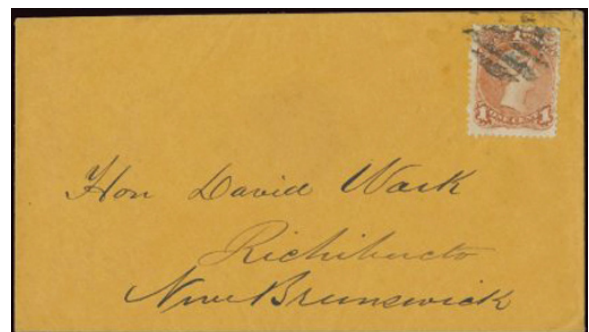 1 ONE CENT 1
Hon David Wark
Richibucto
New Brunswick